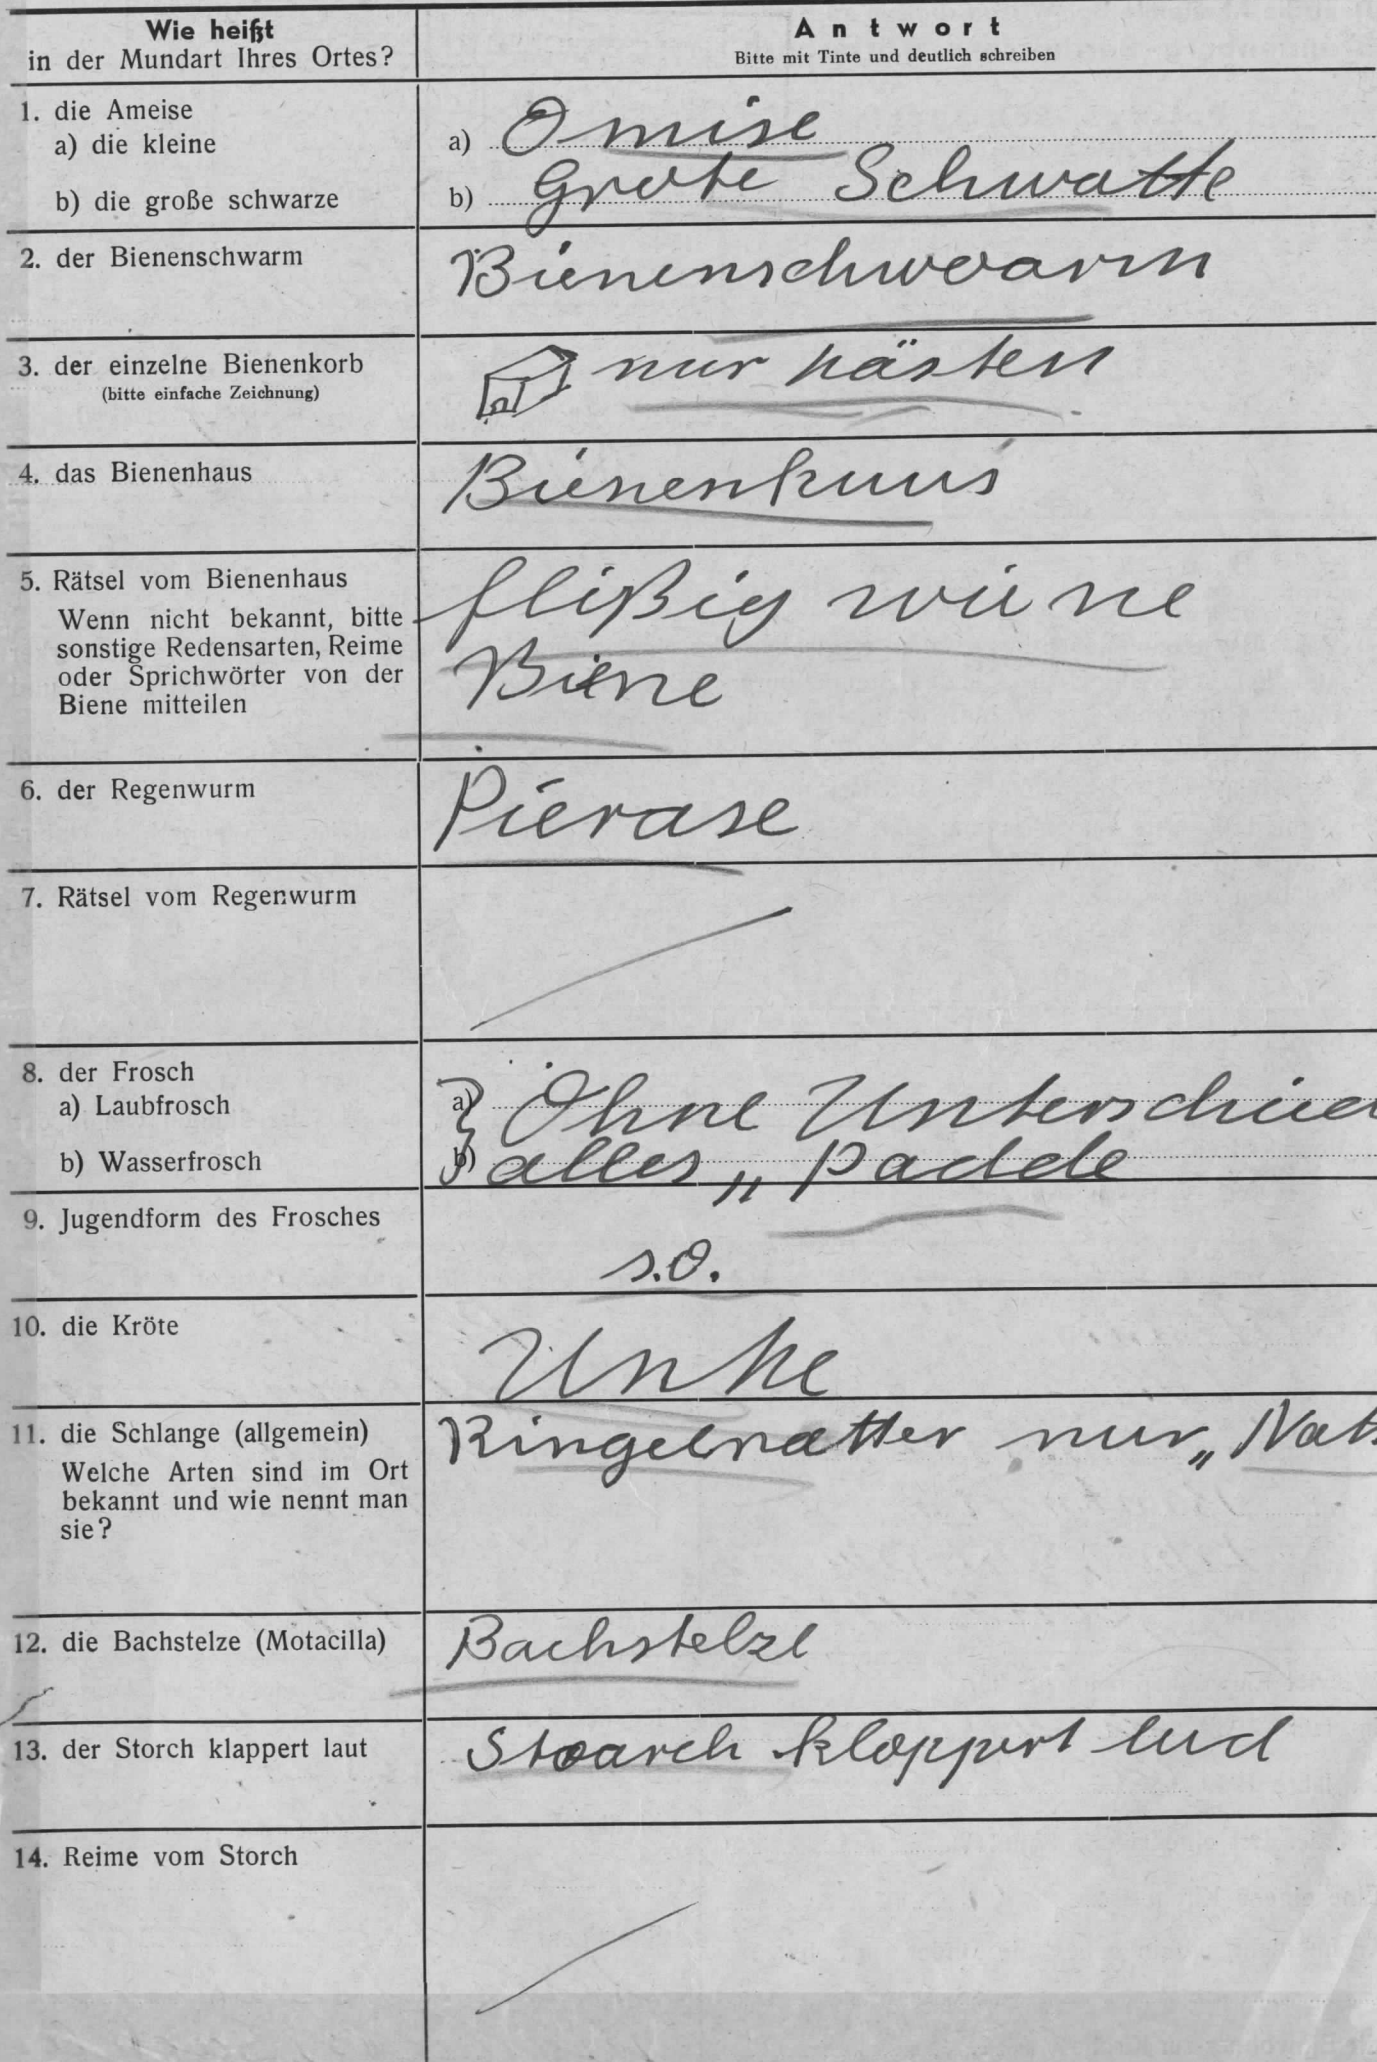 Wie heißt
in der Mundart Ihres Ortes?
Antwort
Bitte mit Tinte und deutlich schreiben
1. die Ameise
a) die kleine
a) Omise
b) die große schwarze
b) Grote Schwatte
2. der Bienenschwarm
Bienenschwoarm
3. der einzelne Bienenkorb
(bitte einfache Zeichnung)
nur kästen
4. das Bienenhaus
Bienenhuus
5. Rätsel vom Bienenhaus
Wenn nicht bekannt, bitte
sonstige Redensarten, Reime
oder Sprichwörter von der
Biene mitteilen
flißig wü ne
Biene
6. der Regenwurm
Pierase
7. Rätsel vom Regenwurm
8. der Frosch
a) Laubfrosch
a) Ohne Unterschied
b) Wasserfrosch
b) alles „ Padde
9. Jugendform des Frosches
s.o.
10. die Kröte
Unke
11. die Schlange (allgemein)
Welche Arten sind im Ort
bekannt und wie nennt man
sie?
Ringelnatter nur „
12. die Bachstelze (Motacilla)
Bachstelze
13. der Storch klappert laut
Stoarch kloppert lud
14. Reime vom Storch